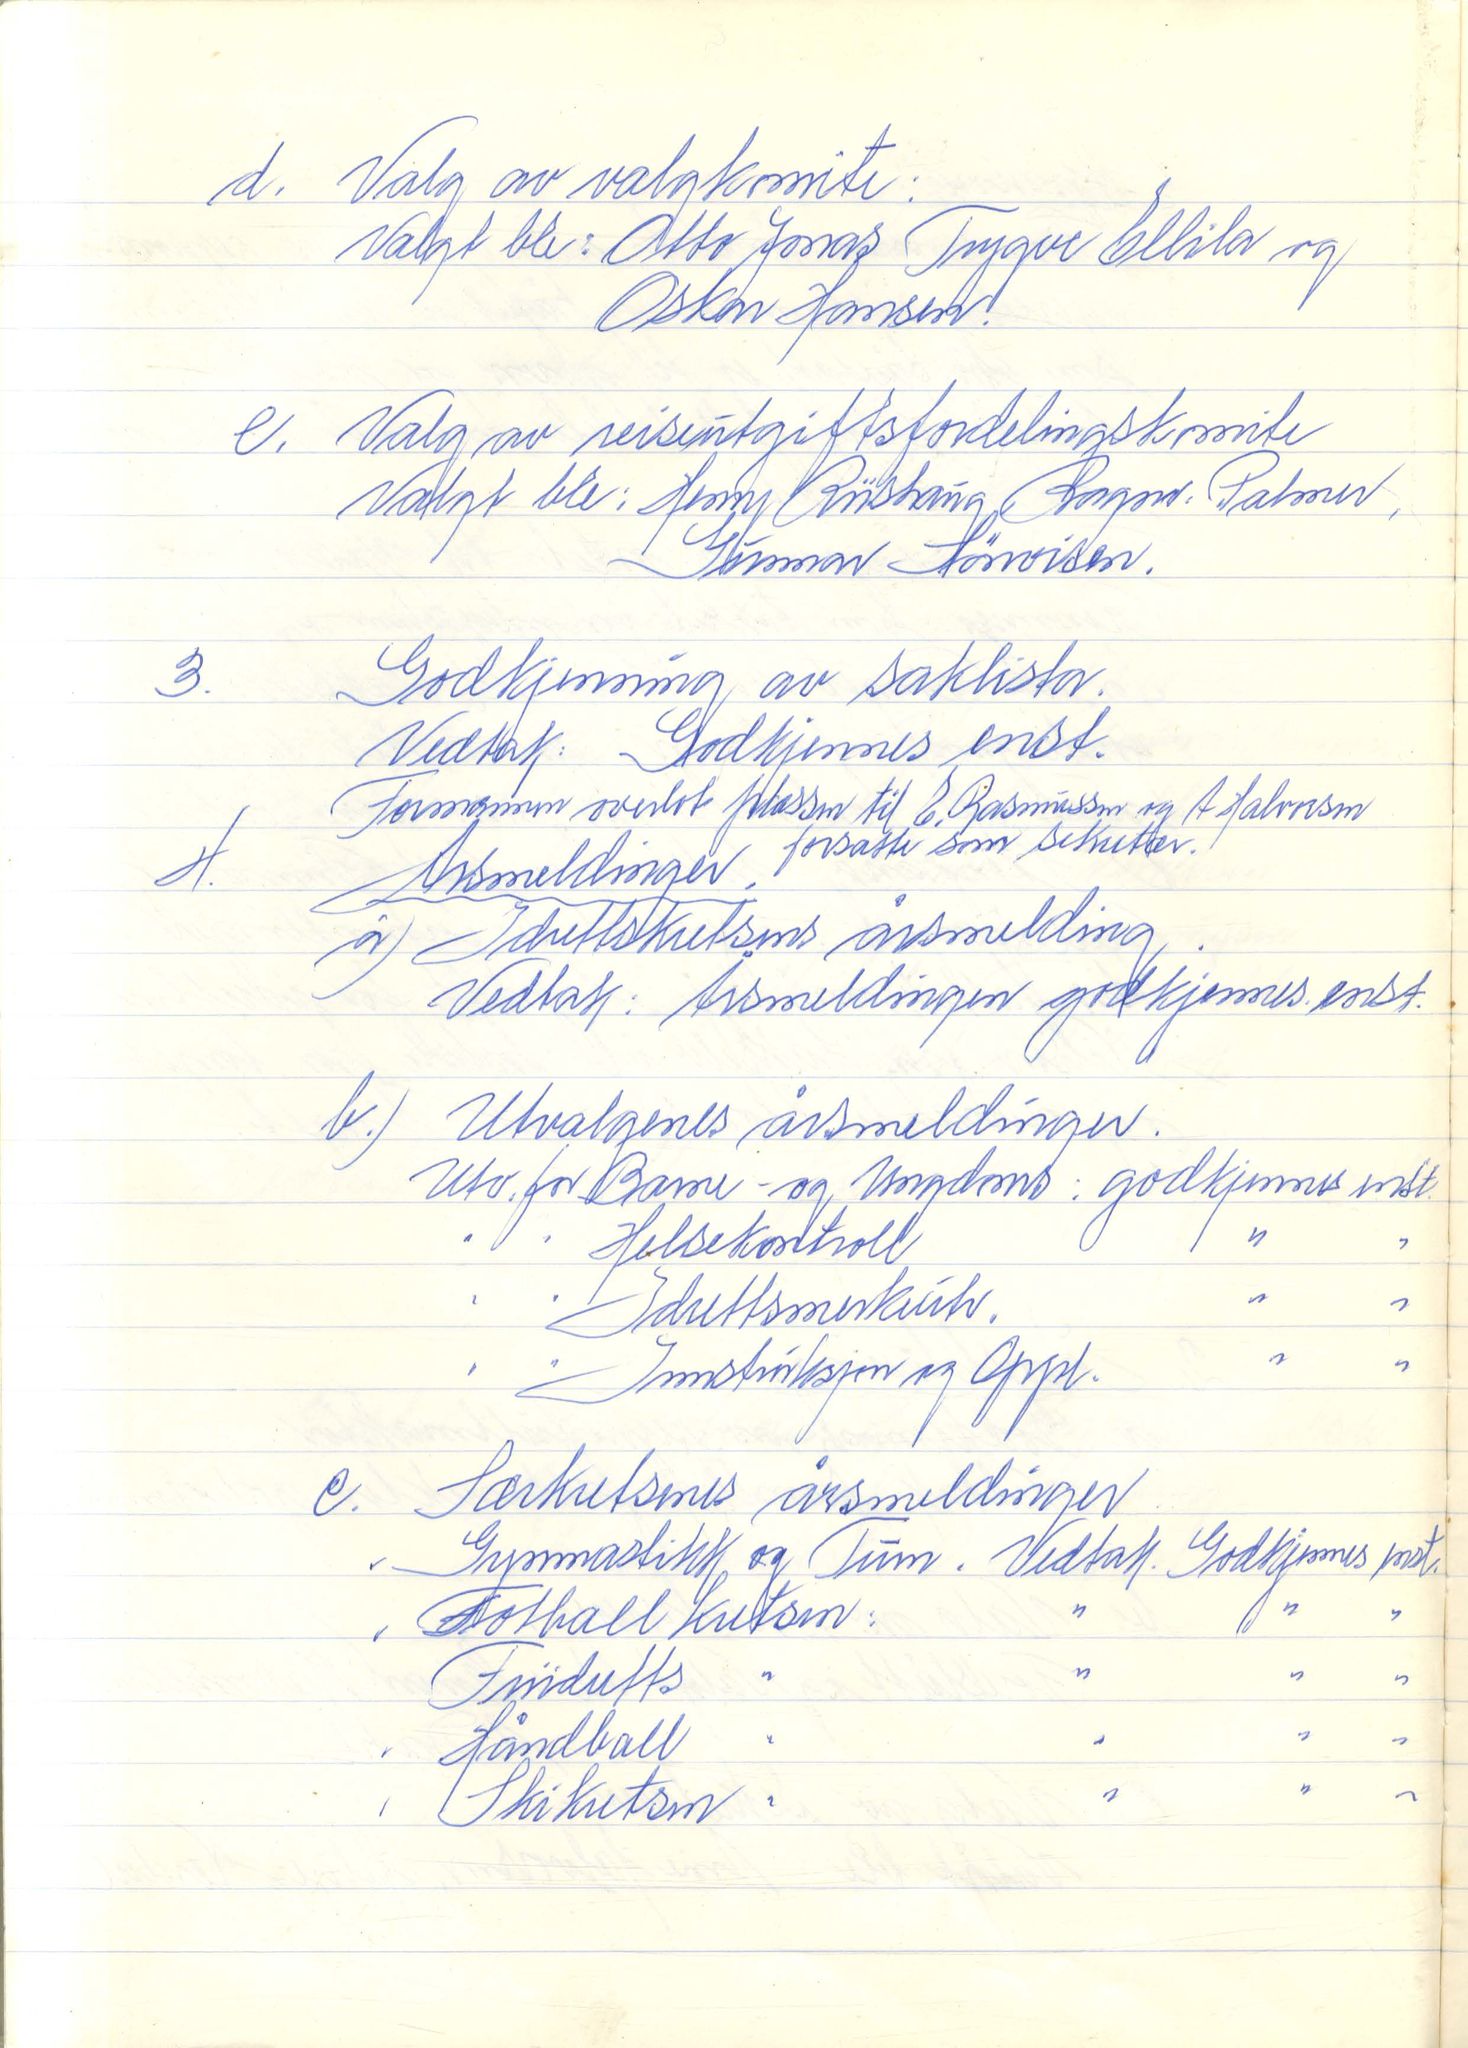 d. Valg av valgkomite:
Valgt ble: Otto Jonas Trygve Ellila og
Oskar Hansen.
e. Valg av reiseutgiftsfordelingskomite
Valgt ble: Henry Rushaug, Ragnv. Palmer,
Gunnar
3. Godkjenning av saklista.
Vedtak: Godkjennes enst.
Formannen overlot plassen til E. Rasmussen og A Halvorsen
forsatte som sekretær.
4. Årsmeldinger.
a) Idrettskretsens årsmelding.
Vedtak: Årsmeldingen godkjennes enst.
b.) Utvalgenes årsmeldinger.
Utv. for Barne- og Ungdoms: godkjennes enst.
" " Helsekontroll " "
" " Idrettsmerkeutv. " "
" " Innstruksjon og Oppl. " "
c. Særkretsenes årsmeldinger
" Gymnastikk og Turn. Vedtak. Godkjennes enst.
" Fotball kretsen: " " "
Friidretts " " " "
" Håndball " " " "
" Skikretsen " " " "